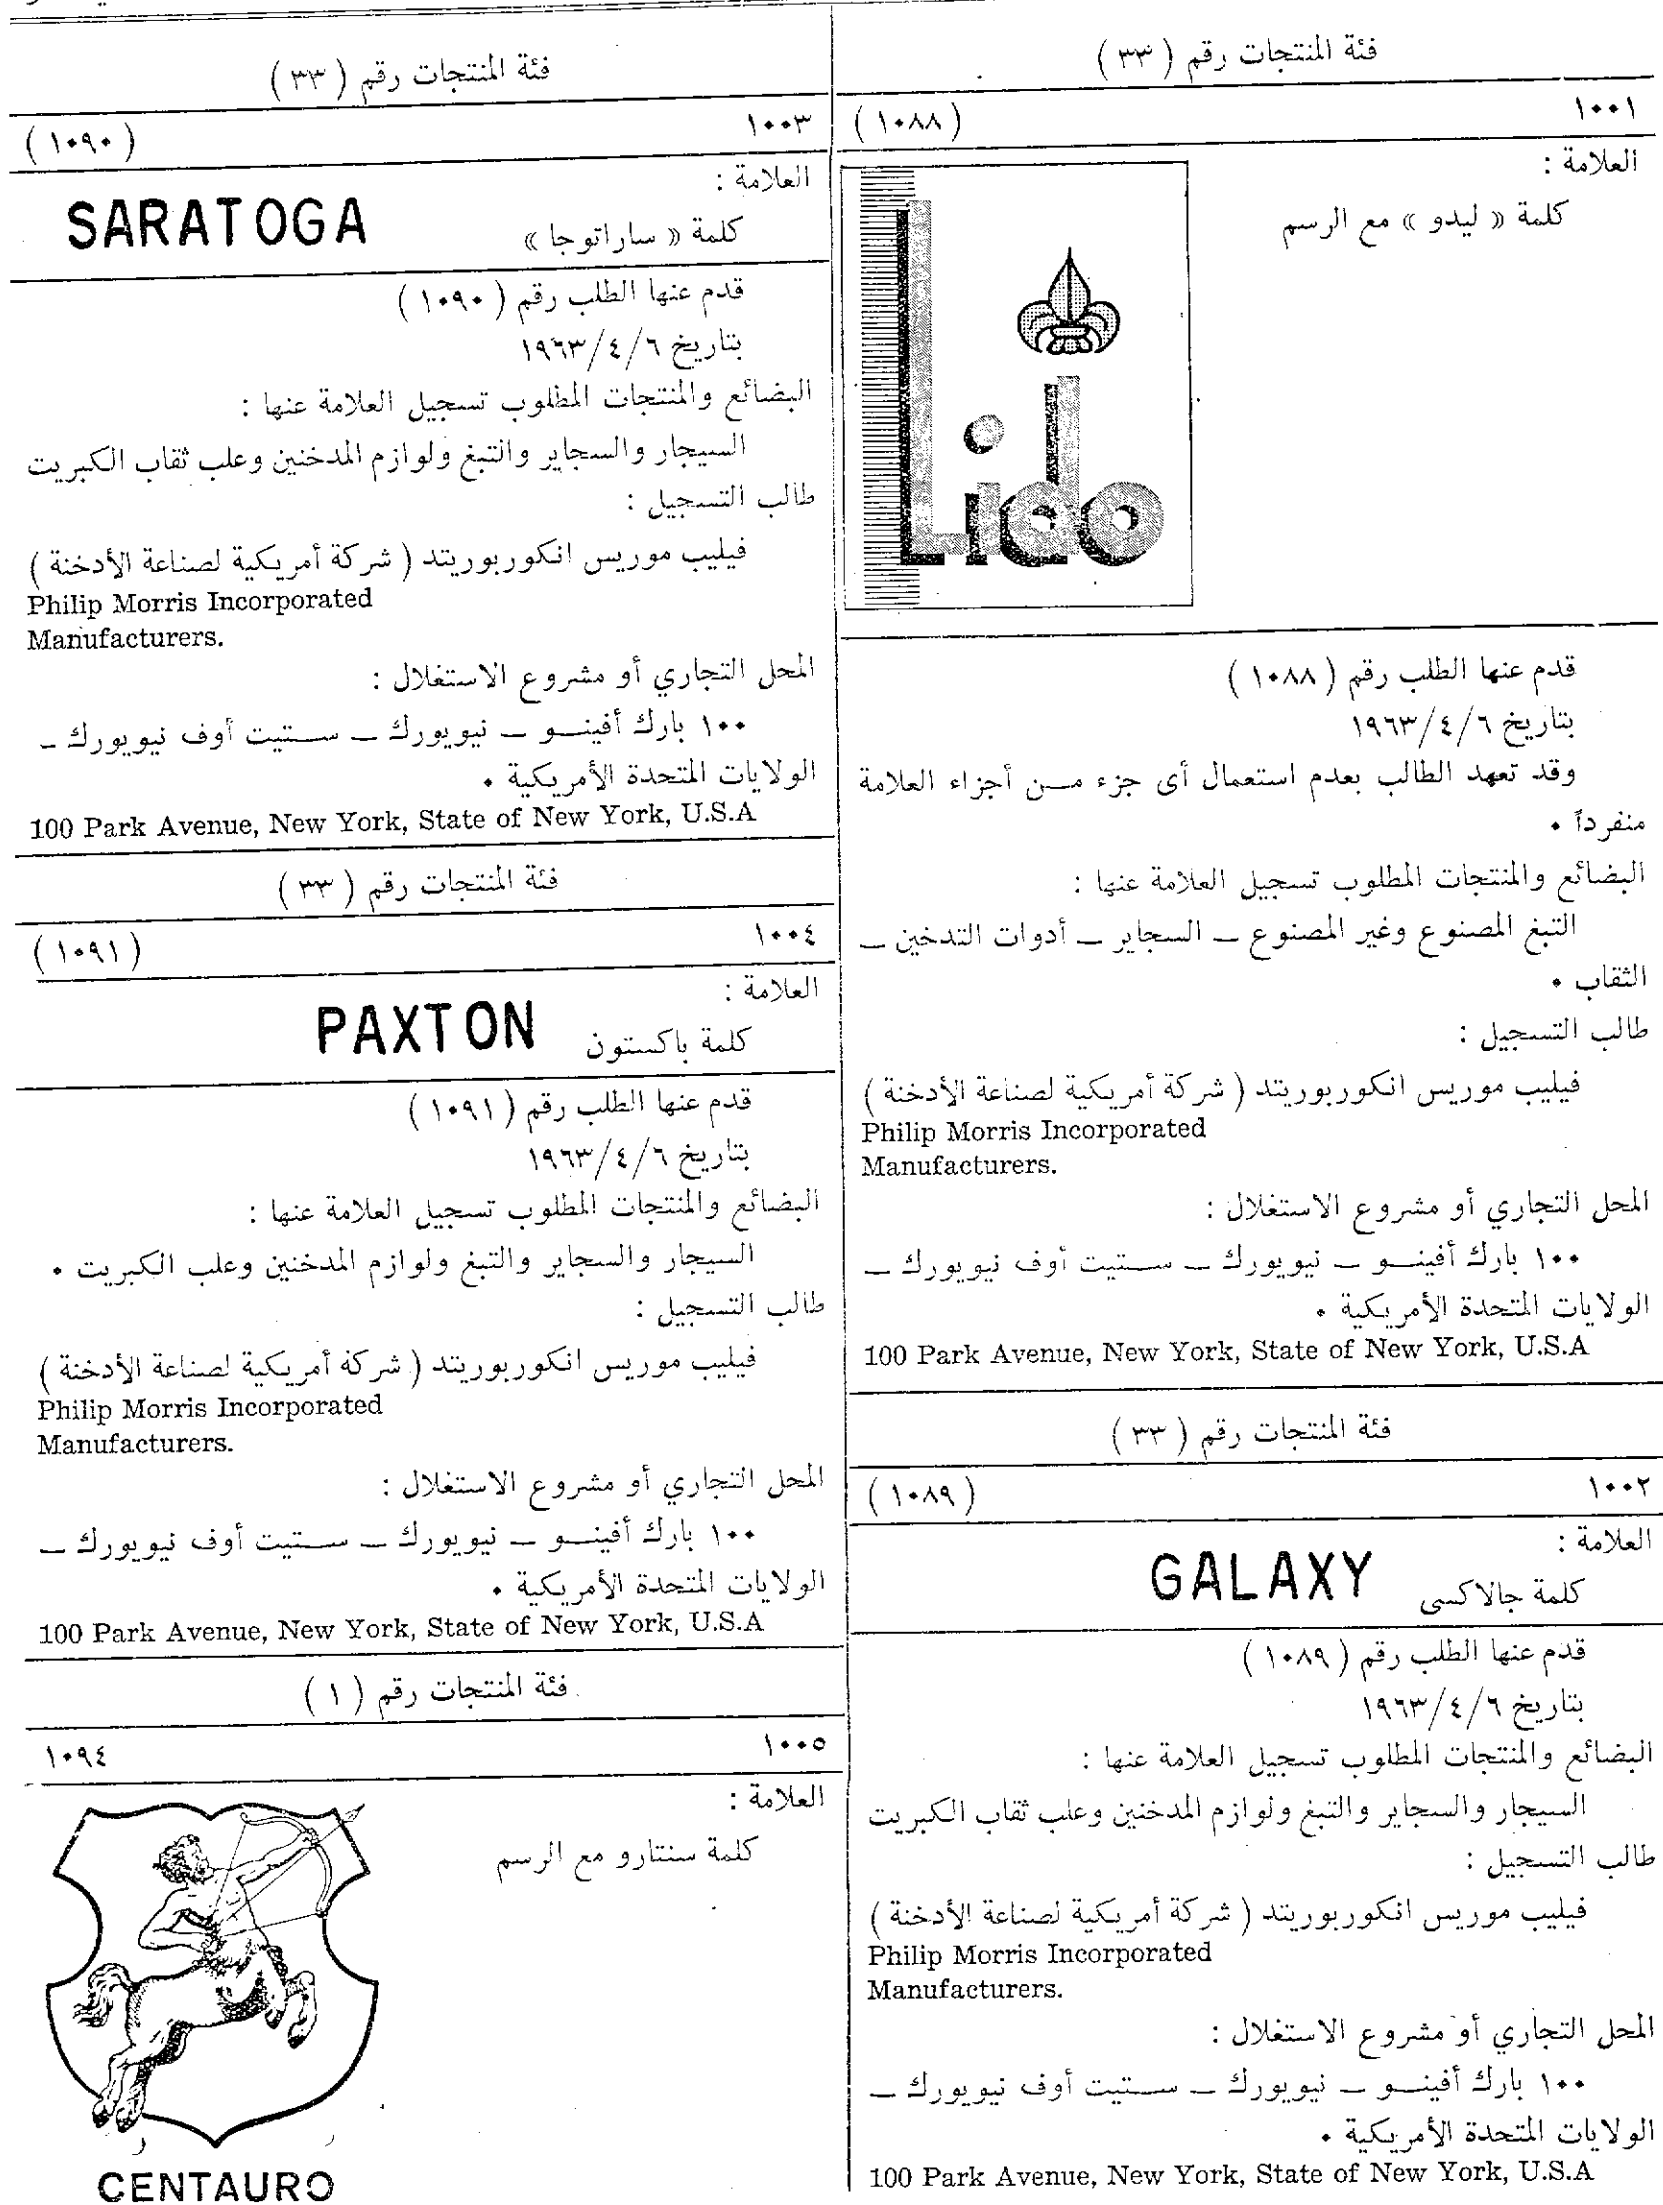 فئة المنتجات رقم ( ٣٣ )
١٠٠١ ( ١٠٨٨ )
العلامة :
كلمة « ليدو » مع الرسم
Lido
قدم عنها الطلب رقم ( ١٠٨٨ )
بتاريخ ١٩٦٣/٤/٦
وقد تعهد الطالب بعدم استعمال أى جزء مــن أجزاء العلامة
منفرداً •
البضائع والمنتجات المطلوب تسجيل العلامة عنها :
التبغ المصنوع وغير المصنوع ــ السجاير ــ أدوات التدخين ــ
الثقاب •
طالب التسجيل :
فيليب موريس انكوربوريتد ( شركة أمريكية لصناعة الأدخنة )
Philip Morris Incorporated
Manufacturers.
المحل التجاري أو مشروع الاستغلال :
١٠٠ بارك أفينــو ــ نيويورك ــ ســتيت أوف نيويورك ــ
الولايات المتحدة الأمريكية •
100 Park Avenue, New York, State of New York, U.S.A
فئة المنتجات رقم ( ٣٣ )
١٠٠٢ ( ١٠٨٩ )
العلامة :
كلمة جالاكسى GALAXY
قدم عنها الطلب رقم ( ١٠٨٩ )
بتاريخ ١٩٦٣/٤/٦
البضائع والمنتجات المطلوب تسجيل العلامة عنها :
السيجار والسجاير والتبغ ولوازم المدخنين وعلب ثقاب الكبريت
طالب التسجيل :
فيليب موريس انكوربوريتد ( شركة أمريكية لصناعة الأدخنة )
Philip Morris Incorporated
Manufacturers.
المحل التجاري أو مشروع الاستغلال :
١٠٠ بارك أفينــو ــ نيويورك ــ ســتيت أوف نيويورك ــ
الولايات المتحدة الأمريكية •
100 Park Avenue, New York, State of New York, U.S.A
فئة المنتجات رقم ( ٣٣ )
١٠٠٣ ( ١٠٩٠ )
العلامة :
كلمة « ساراتوجا » SARATOGA
قدم عنها الطلب رقم ( ١٠٩٠ )
بتاريخ ١٩٦٣/٤/٦
البضائع والمنتجات المطلوب تسجيل العلامة عنها :
السيجار والسجاير والتبغ ولوازم المدخنين وعلب ثقاب الكبريت
طالب التسجيل :
فيليب موريس انكوربوريتد ( شركة أمريكية لصناعة الأدخنة )
Philip Morris Incorporated
Manufacturers.
المحل التجاري أو مشروع الاستغلال :
١٠٠ بارك أفينــو ــ نيويورك ــ ســتيت أوف نيويورك ــ
الولايات المتحدة الأمريكية •
100 Park Avenue, New York, State of New York, U.S.A
فئة المنتجات رقم ( ٣٣ )
١٠٠٤ ( ١٠٩١ )
العلامة :
كلمة باكستون PAXTON
قدم عنها الطلب رقم ( ١٠٩١ )
بتاريخ ١٩٦٣/٤/٦
البضائع والمنتجات المطلوب تسجيل العلامة عنها :
السيجار والسجاير والتبغ ولوازم المدخنين وعلب الكبريت •
طالب التسجيل :
فيليب موريس انكوربوريتد ( شركة أمريكية لصناعة الأدخنة )
Philip Morris Incorporated
Manufacturers.
المحل التجاري أو مشروع الاستغلال :
١٠٠ بارك أفينــو ــ نيويورك ــ ســتيت أوف نيويورك ــ
الولايات المتحدة الأمريكية •
100 Park Avenue, New York, State of New York, U.S.A
فئة المنتجات رقم ( ١ )
١٠٠٥ ١٠٩٤
العلامة :
كلمة سنتارو مع الرسم
CENTAURO